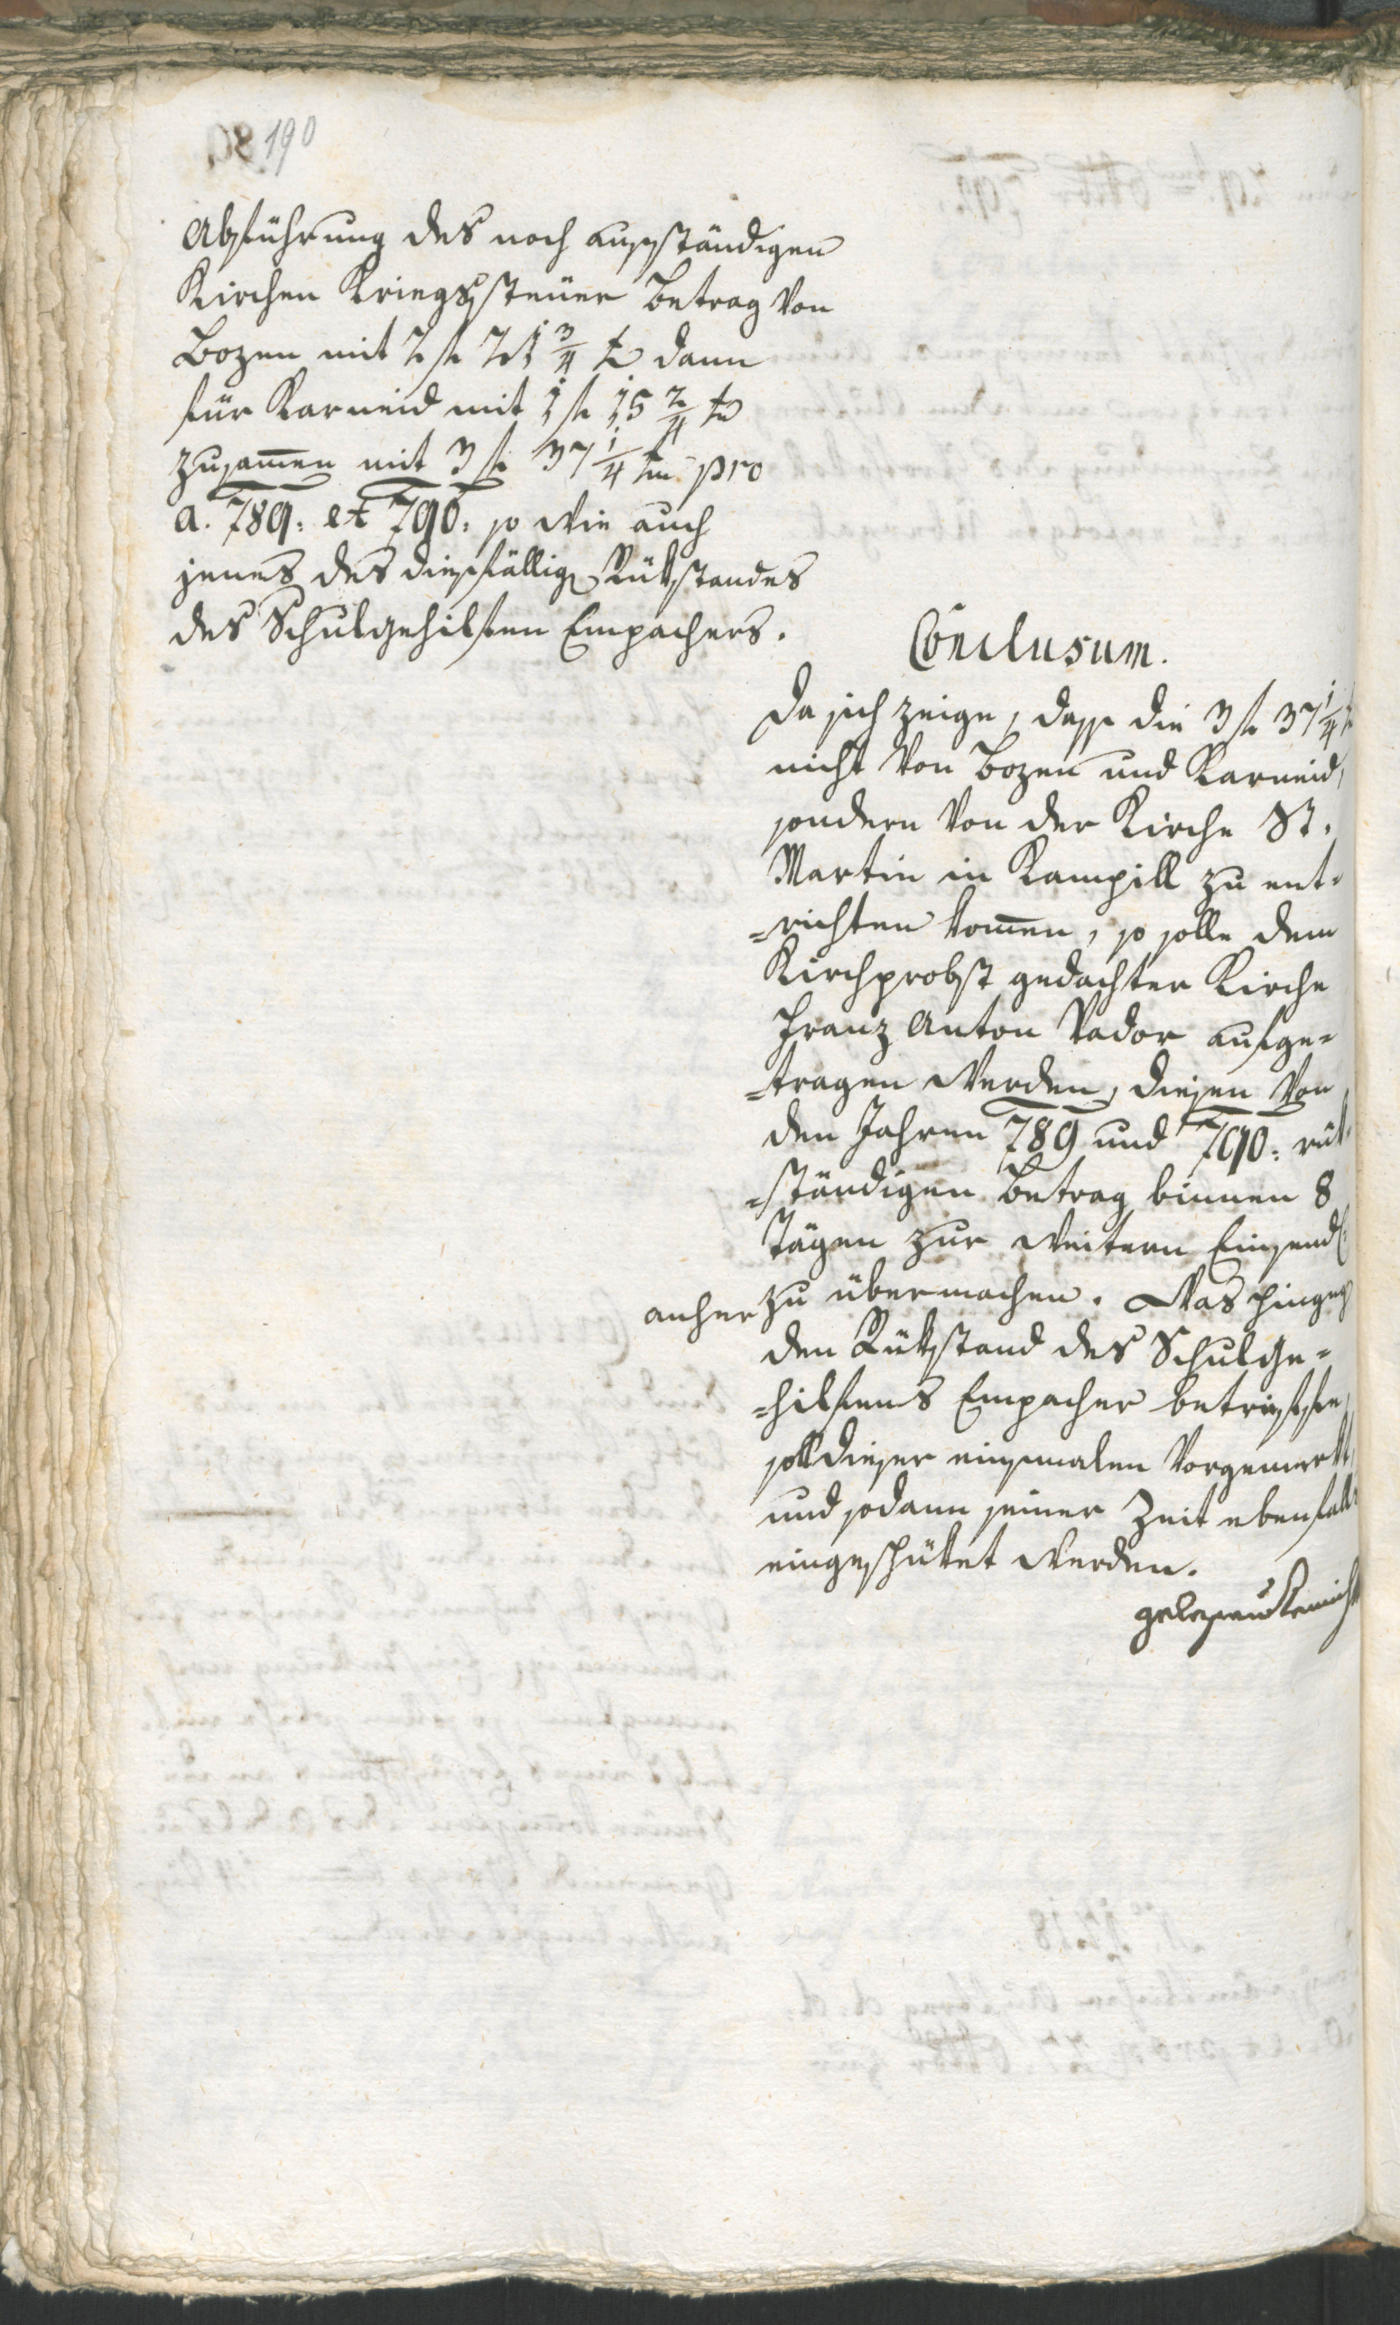 190
Abführung des noch ausständigen
Kirchen Kriegssteuer Betrag von
Bozen mit 2 fl 21 3/4 kr dann
für Karneid mit 1 fl 15 2/4 kr
zusam̅en mit 3 fl 37 1/4 kr pro
a. 789: et 790: so wie auch
jenes des diessfällig Rükstandes
des Schulgehilfen Empachers.
Conclusum.
Da sich zeige, dass die 3 fl 37 1/4 kr
nicht von Bozen und Karneid,
sondern von der Kirche St.
Martin in Kampill zu ent=
=richten kom̅en, so solle dem
Kirchprobst gedachter Kirche
Franz Anton Vador aufge=
=tragen werden, diesen von
den Jahren 789 und 790: rük=
=ständigen Betrag binnen 8
Tägen zur weitern Einsend:
anher zu übermachen. Was hingeg
den Rükstand des Schulge=
=hilfens Empacher betriffte,
soll dieser einsmalen vorgemerkt,
und sodann seiner Zeit ebenfalls
eingeschüket werden.